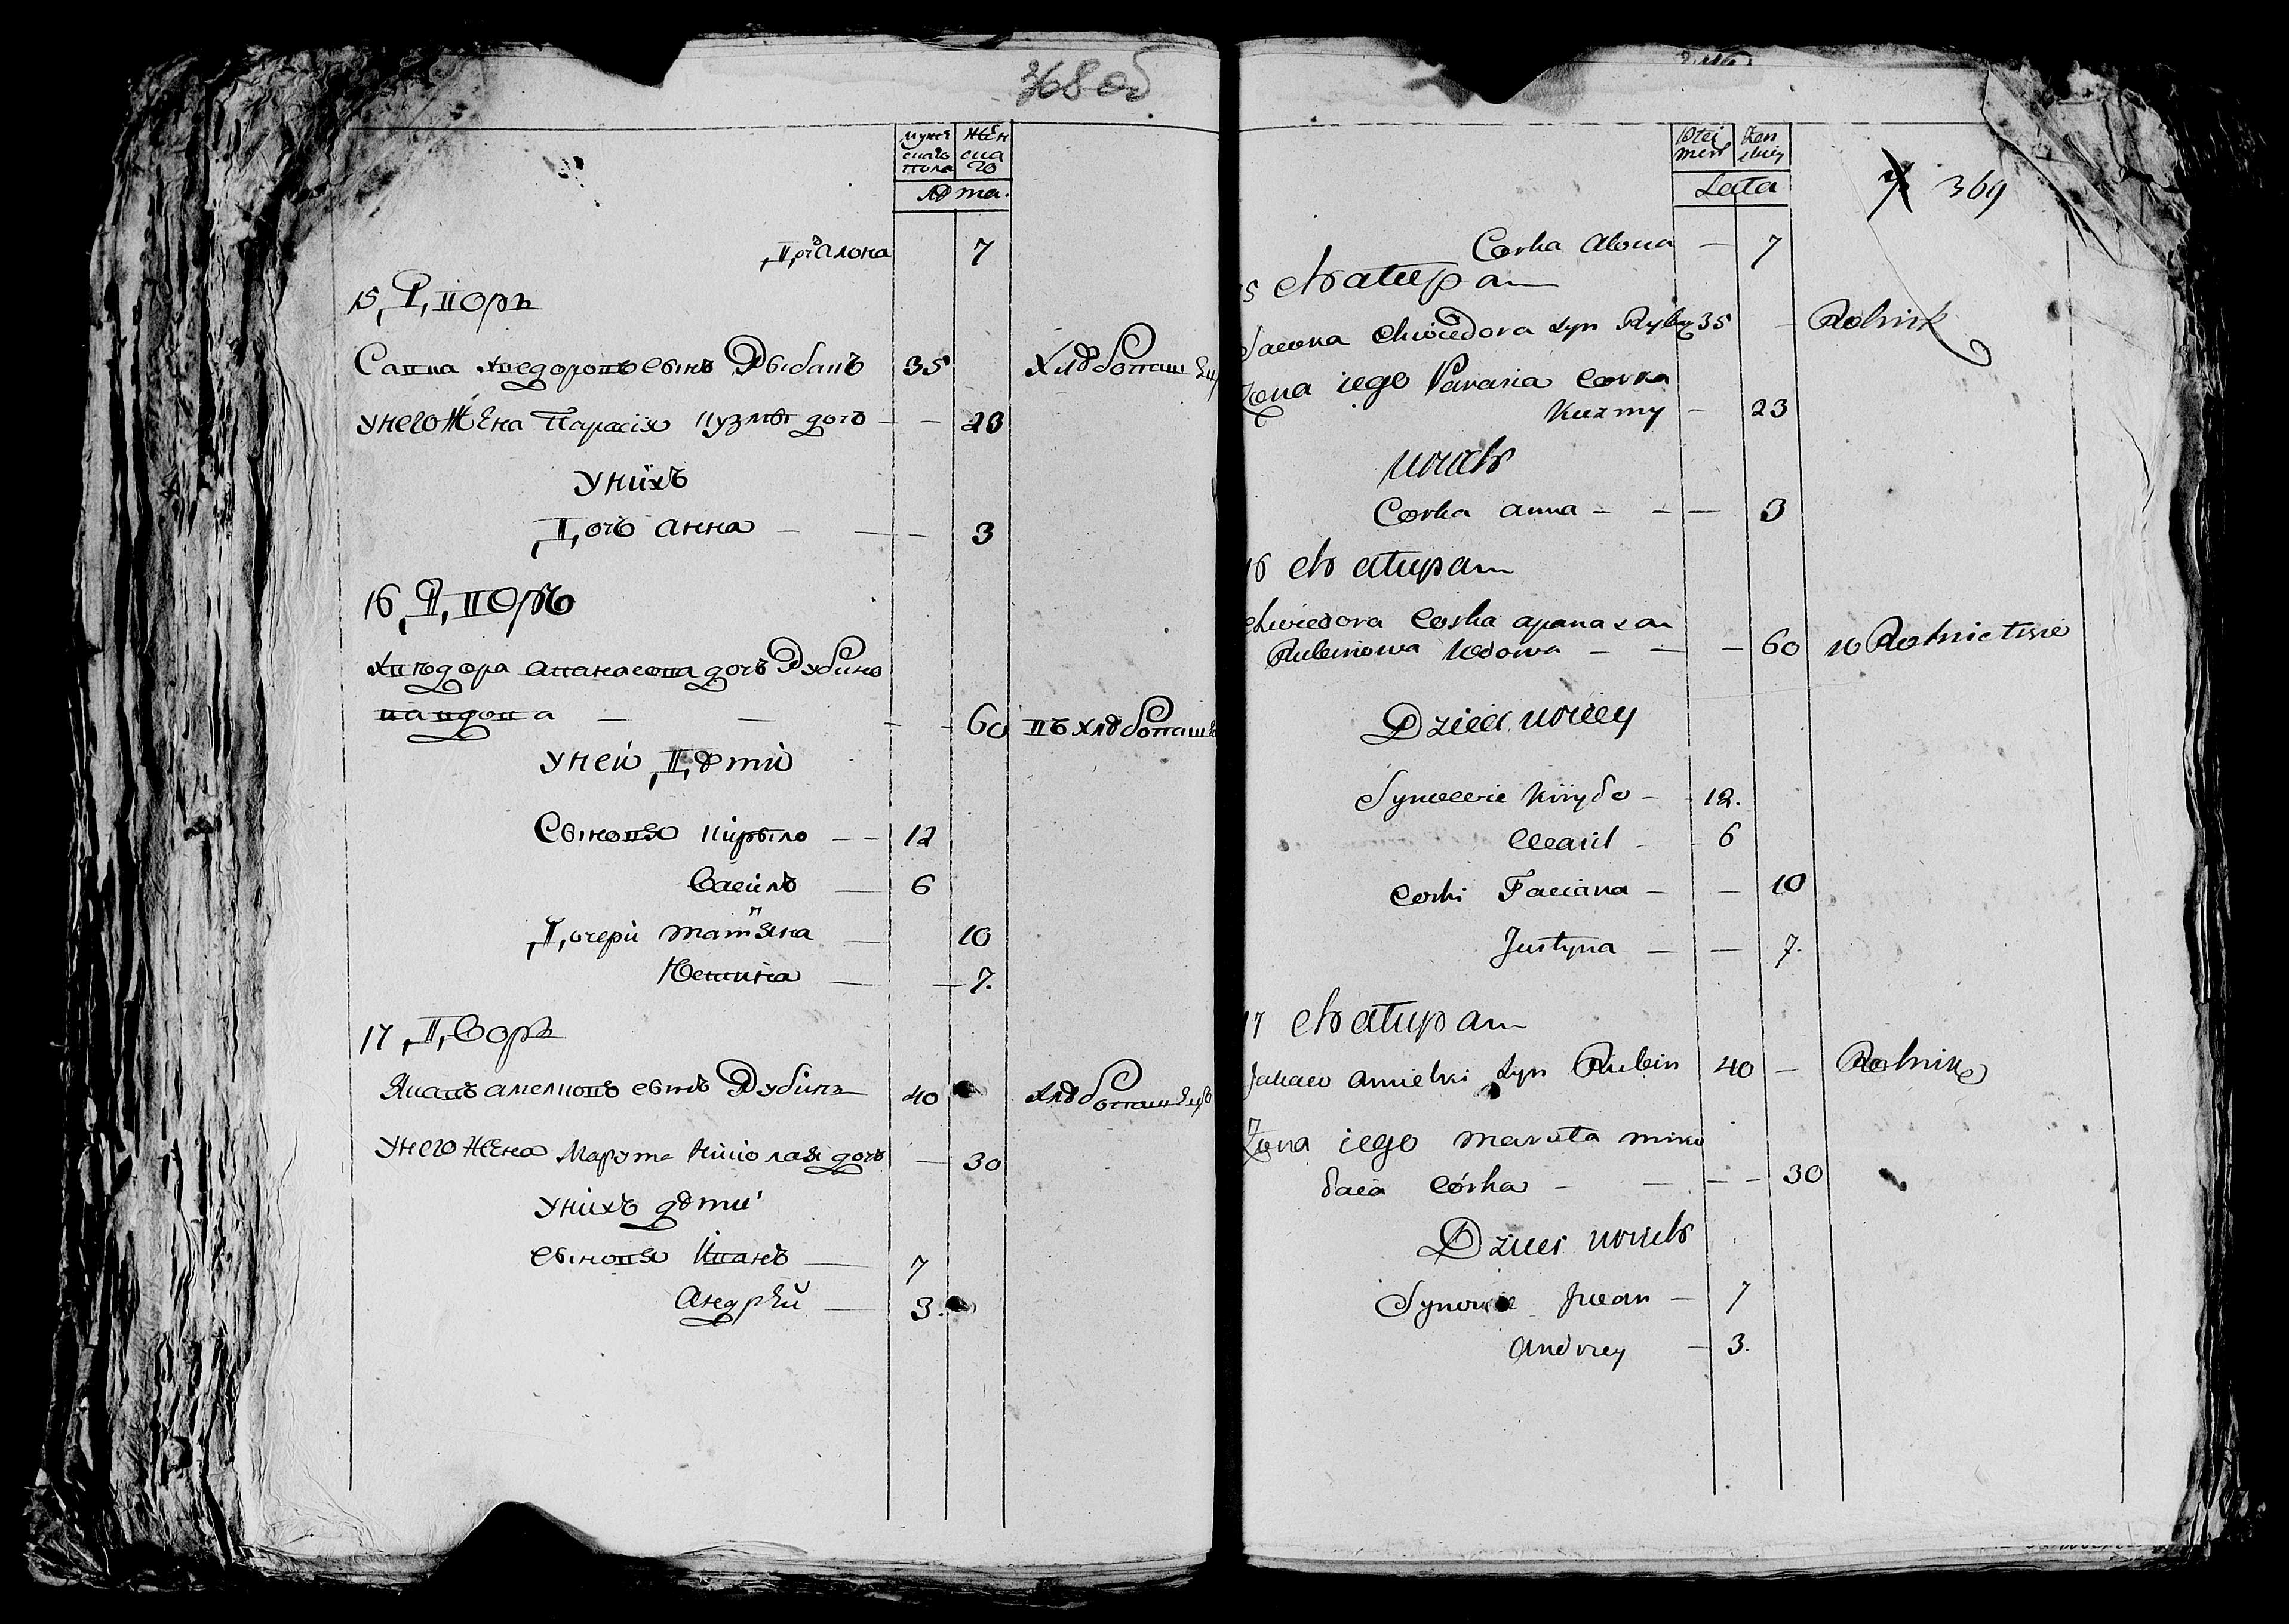 368 об
мужескаго пола
женскаго
Лѣта.
Дочь Алона 7
15 Дворъ
Савка Хведоровъ сынъ Рыбакъ 35 Хлѣбопашец
У него Жена Парасія Кузмы дочь – – 23
У нихъ
Дочь Анна – – – 3
16 Дворъ
Хведора Апанасова дочь Рубино
ва вдова – – – – 60 въ хлѣбопаш
У ней Дѣти
Сыновья Кирыло – – 12
Василь – 6
Дочери Татьяна – 10
Юстина – – 7.
17 Дворъ
Якавъ Амелковъ сынъ Рубинъ 40 хлѣбопашецъ
У него Жена Марута Николая дочь – 30
У нихъ дѣти
сыновья Иванъ – 7
Андрей – 3.
369
Płci męs
Żen skiey
Lata
Corka Alona – 7
Rolnik
Żona iego Parasia corka
Kuzmy – 23
u nich
Corka anna – – – 3
16
Chwiedora Corka apanasa
Rubinowa wdowa – – – 60 w Rolnictwie
Dzieci u niey
Synowie Kiryło – - 12.
Wasil – - 6
Corki Taciana – – 10
Justyna – – 7.
17
Jakow Amielki syn Rubin 40 – Rolnik
Żona iego maruta miko
łaia córka – – – – 30
Dzieci u nich
Synowie Jwan – 7
Andrey – 3.